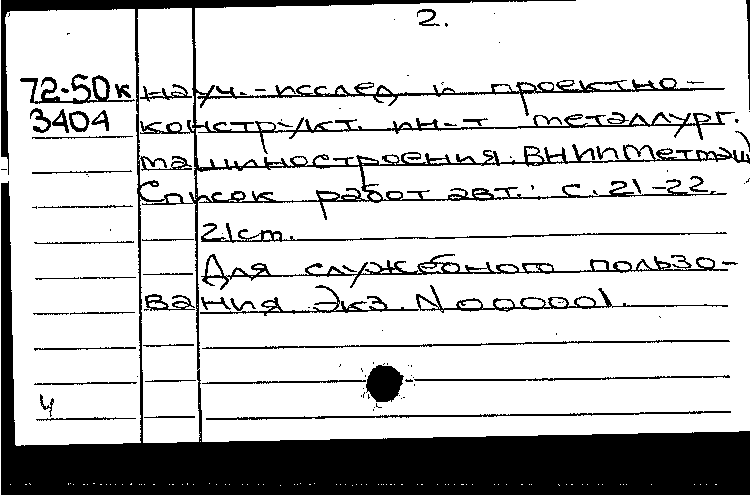 2.
72-50к науч.-исслед и проектно-
3404 конструкт. ин-т металлург.
машиностроения. ВНИИМетмаш)
Список работ авт.: с. 21-22.
21 cm.
Для служебного пользо-
вания. Экз. N 000001.
4